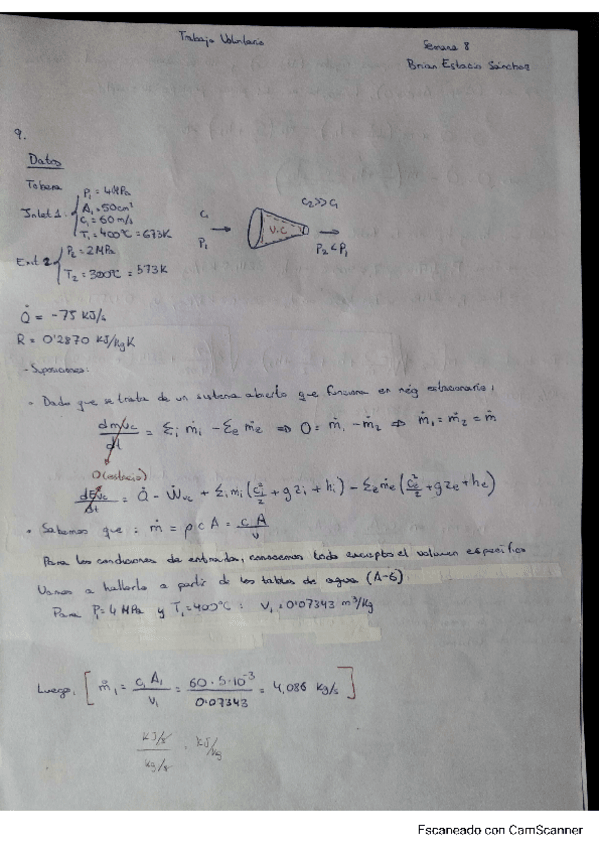 Trabajo Voluntario
Semana 8
Brian Estacio Sánchez
9.
Datos
Tobera
Inlet 1
P₁ = 4MPa
A₁ = 50cm²
C₁ = 60 m/s
T₁ = 400°C = 673K
Exit 2
P₂ = 2MPa
T₂ = 300°C = 573K
C₁
P₁
V.C
C₂>>C₁
P₂<P₁
Q̇ = -75 KJ/s
R = 0'2870 KJ/KgK
- Suposiciones:
• Dado que se trata de un sistema abierto que funciona en rég estacionario:
dm_vc/dt = Σᵢ ṁᵢ - Σₑ ṁₑ => 0 = ṁ₁ - ṁ₂ => ṁ₁ = ṁ₂ = ṁ
0 (estacio)
dE_vc/dt = Q̇ - Ẇvc + Σᵢ ṁᵢ (cᵢ²/2 + gzᵢ + hᵢ) - Σₑ ṁₑ (cₑ²/2 + gzₑ + hₑ)
• Sabemos que: ṁ = ρ c A = c A / v
Para las condiciones de entrada, conocemos todo excepto el volumen específico
Vamos a hallarlo a partir de las tablas de agua (A-6).
Para P₁ = 4 MPa y T₁ = 400°C : v₁ = 0'07343 m³/Kg
Luego, [ ṁ₁ = c₁ A₁ / v₁ = 60 · 5 · 10⁻³ / 0.07343 = 4,086 Kg/s ]
KJ/s / kg/s = KJ/kg
Escaneado con CamScanner